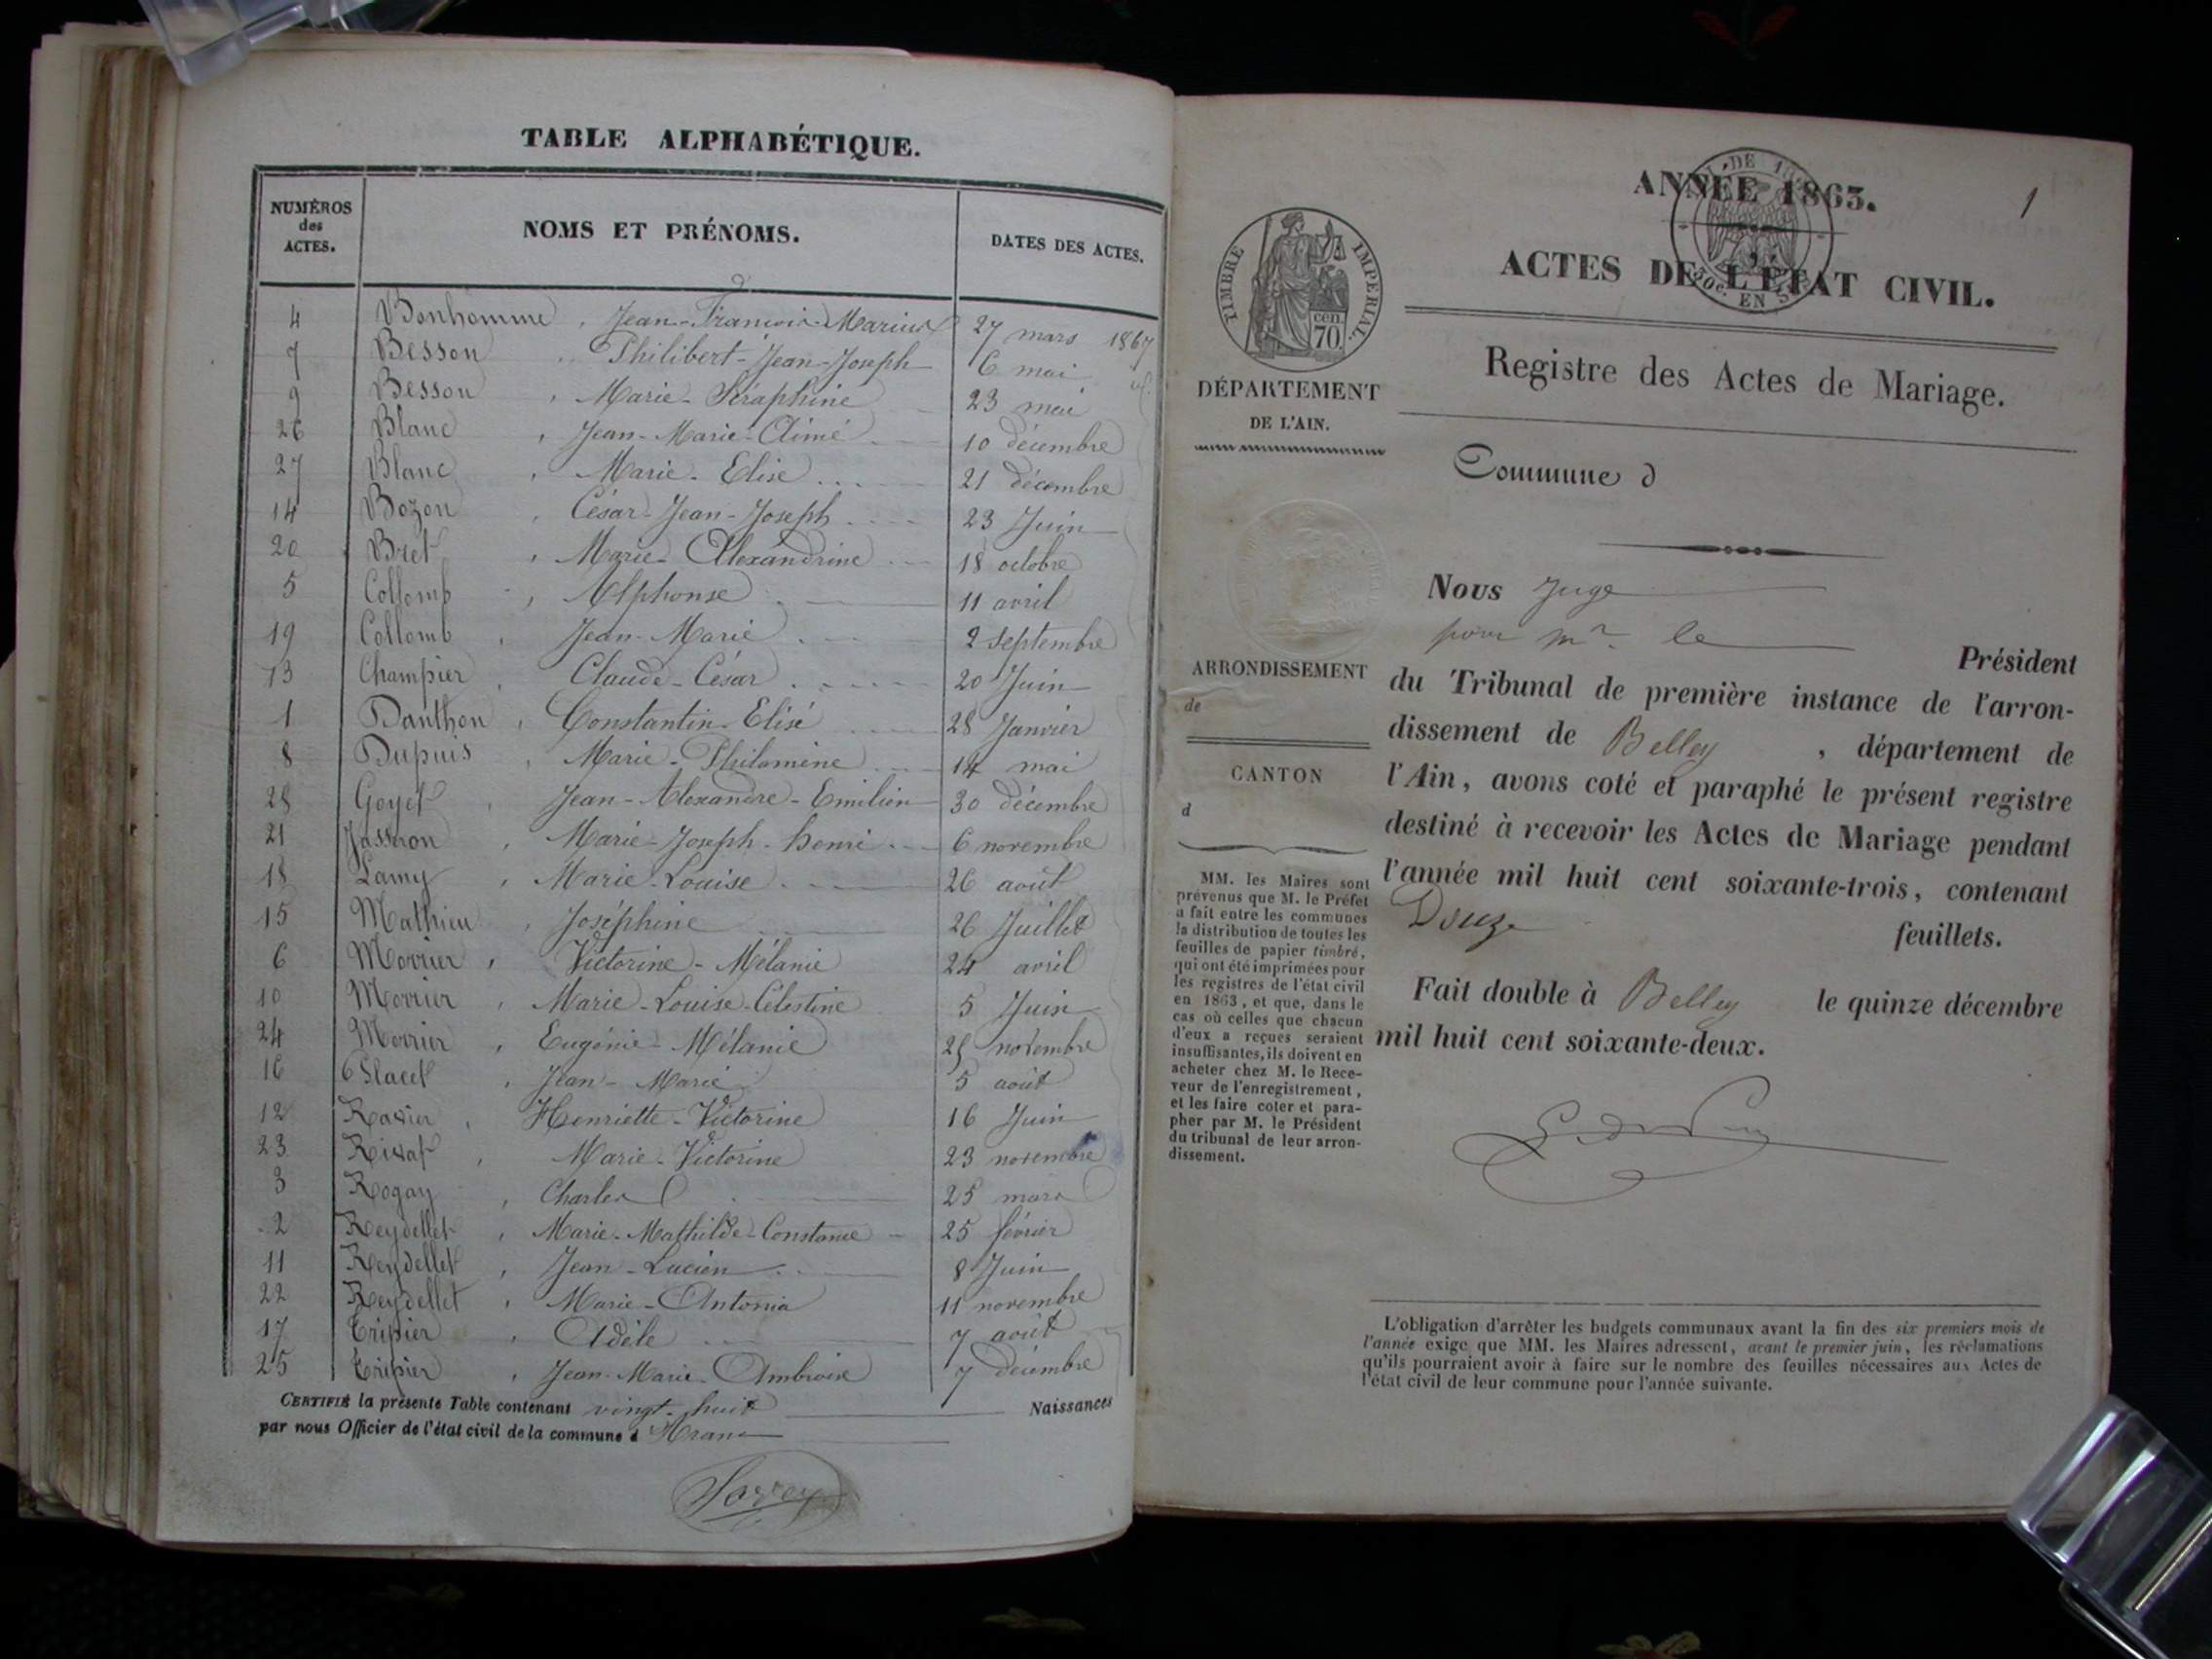 TABLE ALPHABÉTIQUE.
NUMÉROS des ACTES. NOMS ET PRÉNOMS. DATES DES ACTES.
4 Bonhomme, Jean-François-Marius 27 mars 1867
7 Besson, Philibert-Jean-Joseph 6 mai
9 Besson, Marie-Séraphine 23 mai
26 Blanc, Jean-Marie-Aimé 10 décembre
27 Blanc, Marie-Elise 21 décembre
14 Bozon, César-Jean-Joseph 23 Juin
20 Bret, Marie-Alexandrine 18 octobre
5 Collomb, Alphonse 11 avril
19 Collomb, Jean-Marie 2 septembre
13 Champier, Claude-César 20 Juin
1 Danthon, Constantin-Elisé 28 Janvier
8 Dupuis, Marie-Philomène 14 mai
28 Goyet, Jean-Alexandre-Emilien 30 décembre
21 Jasseron, Marie-Joseph-henri 6 novembre
18 Lamy, Marie-Louise 26 août
15 Mathieu, Joséphine 26 Juillet
6 Morrier, Victorine-Mélanie 24 avril
10 Morrier, Marie-Louise-Célestine 5 Juin
24 Morrier, Eugénie-Mélanie novembre
16 Placet, Jean-Marie 5 août
12 Ravier, Henriette-Victorine 16 Juin
23 Rivat, Marie-Victorine 23 novembre
3 Rogay, Charles 25 mars
2 Reydellet, Marie-Mathilde-Constance 25 février
11 Reydellet, Jean-Lucien 8 Juin
22 Reydellet, Marie-Antonia 11 novembre
17 Tripier, Adèle 7 août
25 Tripier, Jean-Marie-Ambroise 7 décembre
CERTIFIÉ la présente Table contenant vingt-huit Naissances
par nous Officier de l'état civil de la commune d
1
ANNÉE 1863.
ACTES DE L'ÉTAT CIVIL.
TIMBRE IMPÉRIAL.
cen.
70.
30c. EN S
Registre des Actes de Mariage.
DÉPARTEMENT
DE L'AIN.
Commune d
Nous Juge
pour Mr. le
Président
du Tribunal de première instance de l'arron-
dissement de Belley, département de
l'Ain, avons coté et paraphé le présent registre
destiné à recevoir les Actes de Mariage pendant
l'année mil huit cent soixante-trois, contenant
Douze feuillets.
Fait double à Belley le quinze décembre
mil huit cent soixante-deux.
ARRONDISSEMENT
de
CANTON
d
MM. les Maires sont
prévenus que M. le Préfet
a fait entre les communes
la distribution de toutes les
feuilles de papier timbré,
qui ont été imprimées pour
les registres de l'état civil
en 1863, et que, dans le
cas où celles que chacun
d'eux a reçues seraient
insuffisantes, ils doivent en
acheter chez M. le Rece-
veur de l'enregistrement,
et les faire coter et para-
pher par M. le Président
du tribunal de leur arron-
dissement.
L'obligation d'arrêter les budgets communaux avant la fin des six premiers mois de
l'année exige que MM. les Maires adressent, avant le premier juin, les réclamations
qu'ils pourraient avoir à faire sur le nombre des feuilles nécessaires aux Actes de
l'état civil de leur commune pour l'année suivante.